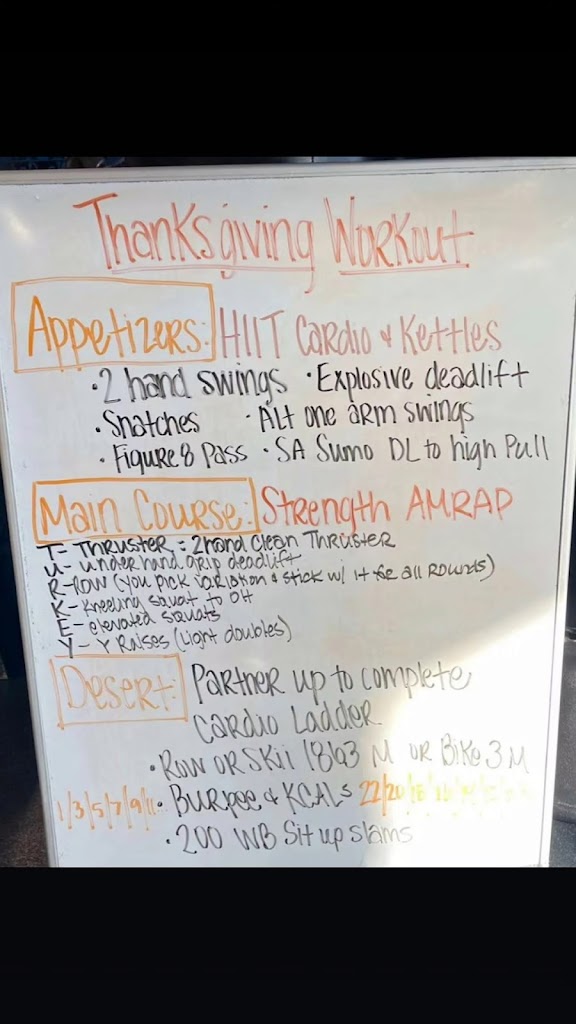 Thanksgiving Workout
Appetizers: HIIT Cardio & Kettles
· 2 hand swings · Explosive deadlift
· Snatches · Alt one arm swings
· Figure 8 Pass · SA Sumo DL to high Pull
Main Course: Strength AMRAP
T- Thruster = 2 hand clean Thruster
U- underhand grip deadlift
R- row (you pick variation & stick w/ it for all rounds)
K- kneeling squat to OH
E- elevated squats
Y- Y Raises (light doubles)
Desert: Partner up to complete
Cardio Ladder
· Row OR Skii 1863 M OR Bike 3 M
1/3/5/7/9/11 · Burpee & KCALs 22/20/18/16
· 200 WB Sit up slams